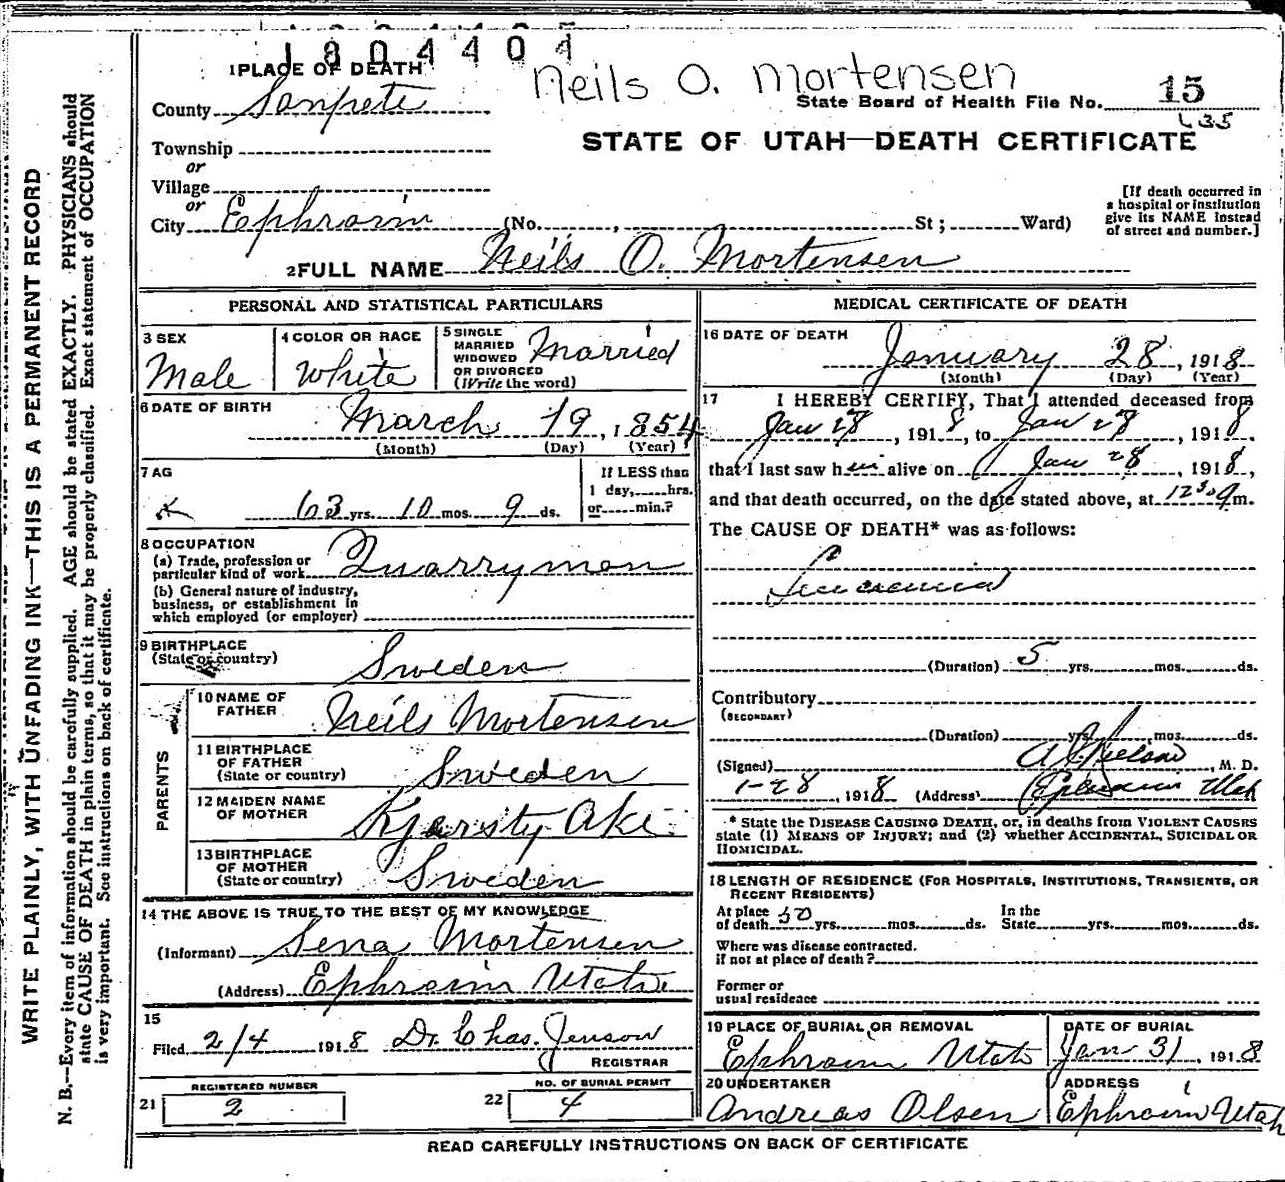 1804404
1 PLACE OF DEATH
Neils O. Mortensen
County Sanpete
State Board of Health File No. 15
635
Township
STATE OF UTAH—DEATH CERTIFICATE
or
Village
or
City Ephraim (No. , St ; Ward)
[If death occurred in
a hospital or institution
give its NAME instead
of street and number.]
2 FULL NAME Neils O. Mortensen
PERSONAL AND STATISTICAL PARTICULARS
3 SEX
Male
4 COLOR OR RACE
White
5 SINGLE
MARRIED
WIDOWED
OR DIVORCED
(Write the word)
Married
6 DATE OF BIRTH
March 19, 1854
(Month) (Day) (Year)
7 AG
63 yrs. 10 mos. 9 ds.
If LESS than
1 day, hrs.
or min.?
8 OCCUPATION
(a) Trade, profession or
particular kind of work Quarryman
(b) General nature of industry,
business, or establishment in
which employed (or employer)
9 BIRTHPLACE
(State or country) Sweden
PARENTS
10 NAME OF
FATHER Neils Mortensen
11 BIRTHPLACE
OF FATHER
(State or country) Sweden
12 MAIDEN NAME
OF MOTHER Kjersty Ake
13 BIRTHPLACE
OF MOTHER
(State or country) Sweden
14 THE ABOVE IS TRUE TO THE BEST OF MY KNOWLEDGE
(Informant) Sena Mortensen
(Address) Ephraim Utah.
15
Filed 2/4 1918 Dr. Chas. Jenson
REGISTRAR
REGISTERED NUMBER
21 2
NO. OF BURIAL PERMIT
22 4
MEDICAL CERTIFICATE OF DEATH
16 DATE OF DEATH
January 28, 1918
(Month) (Day) (Year)
17 I HEREBY CERTIFY, That I attended deceased from
Jan 28, 1918, to Jan 28, 1918.
that I last saw him alive on Jan 28, 1918,
and that death occurred, on the date stated above, at 12 30 m.
The CAUSE OF DEATH* was as follows:
(Duration) 5 yrs. mos. ds.
Contributory
(SECONDARY)
(Duration) yrs. mos. ds.
(Signed) , M. D.
1-28, 1918 (Address) Ephraim Utah
* State the DISEASE CAUSING DEATH, or, in deaths from VIOLENT CAUSES
state (1) MEANS OF INJURY; and (2) whether ACCIDENTAL, SUICIDAL OR
HOMICIDAL.
18 LENGTH OF RESIDENCE (FOR HOSPITALS, INSTITUTIONS, TRANSIENTS, OR
RECENT RESIDENTS)
At place
of death 50 yrs. mos. ds.
In the
State yrs. mos. ds.
Where was disease contracted.
if not at place of death?
Former or
usual residence
19 PLACE OF BURIAL OR REMOVAL
Ephraim Utah
DATE OF BURIAL
Jan 31, 1918
20 UNDERTAKER
Andreas Olsen
ADDRESS
Ephraim Utah
READ CAREFULLY INSTRUCTIONS ON BACK OF CERTIFICATE
WRITE PLAINLY, WITH UNFADING INK—THIS IS A PERMANENT RECORD
N. B.—Every item of information should be carefully supplied. AGE should be stated EXACTLY. PHYSICIANS should
state CAUSE OF DEATH in plain terms, so that it may be properly classified. Exact statement of OCCUPATION
is very important. See instructions on back of certificate.